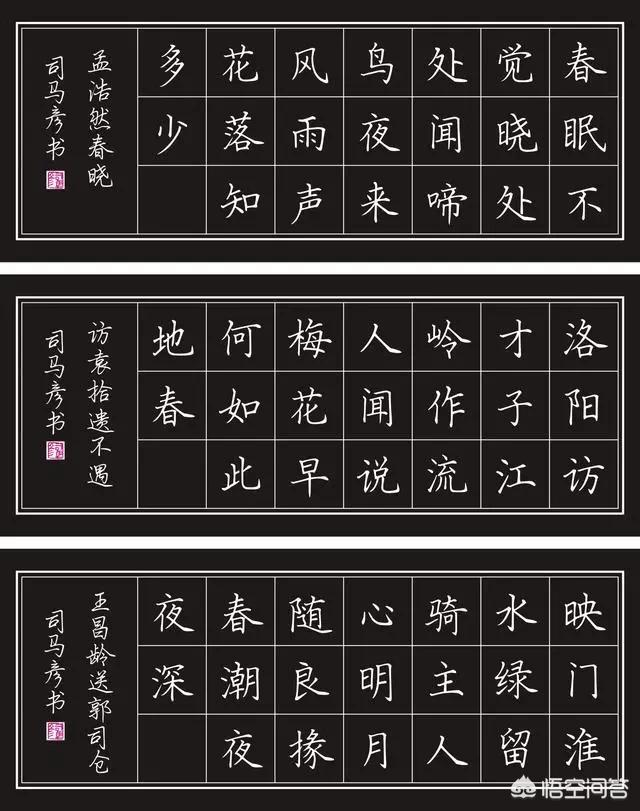 春眠不
觉晓处
处闻啼
鸟夜来
风雨声
花落知
多少
孟浩然春晓
司马彦书
洛阳访
才子江
岭作流
人闻说
梅花早
何如此
地春
访袁拾遗不遇
司马彦书
映门淮
水绿留
骑主人
心明月
随良掾
春潮夜
夜深
王昌龄送郭司仓
司马彦书
悟空问答